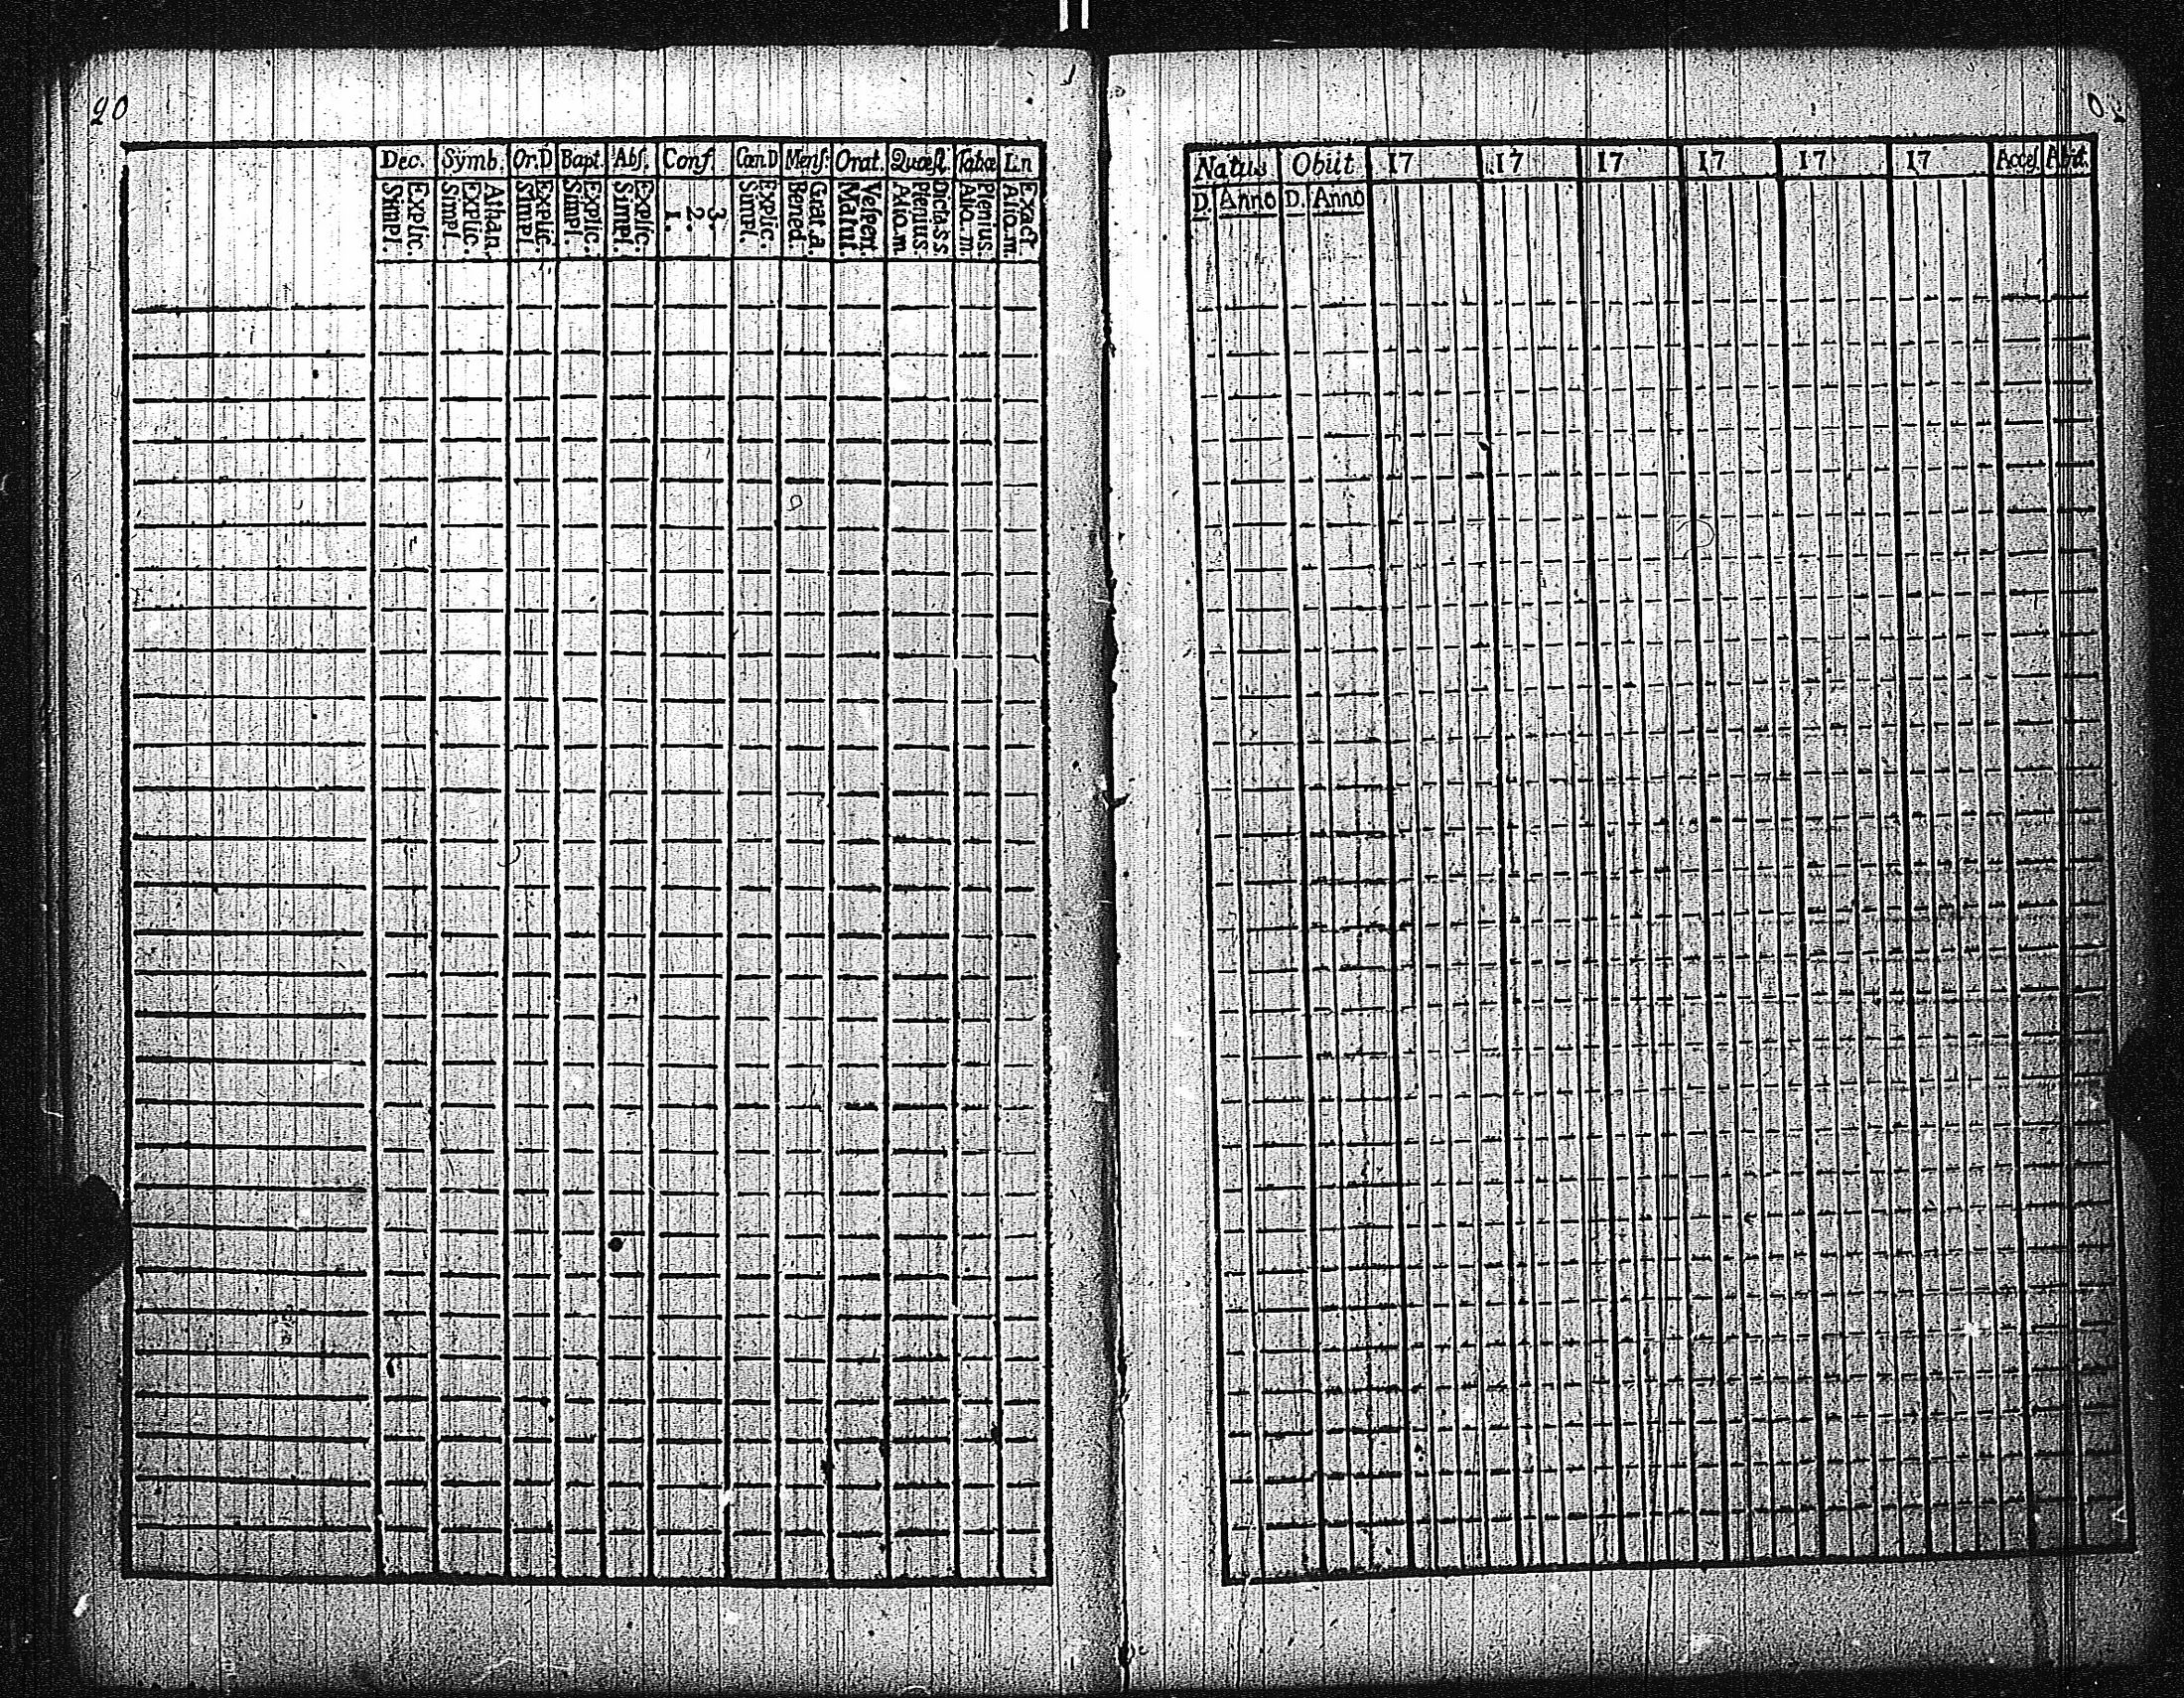 20
Dec. Symb. Or.D Bapt. Abſ. Conf. Cœn.D Menſ. Orat. Quæſt. Tabæ L.n
Explic. Simpl.
Athan. Explic. Simpl.
Explic. Simpl.
Explic. Simpl.
Explic. Simpl.
3. 2. 1.
Explic. Simpl.
Grat. a. Bened.
Veſpert. Matut.
Dict. a ss Plenius Aliq. m
Plenius. Aliq. m.
Exact Aliq. m.
Natus Obiit 17 17 17 17 17 17 Acceſ. Abit.
D. Anno D. Anno